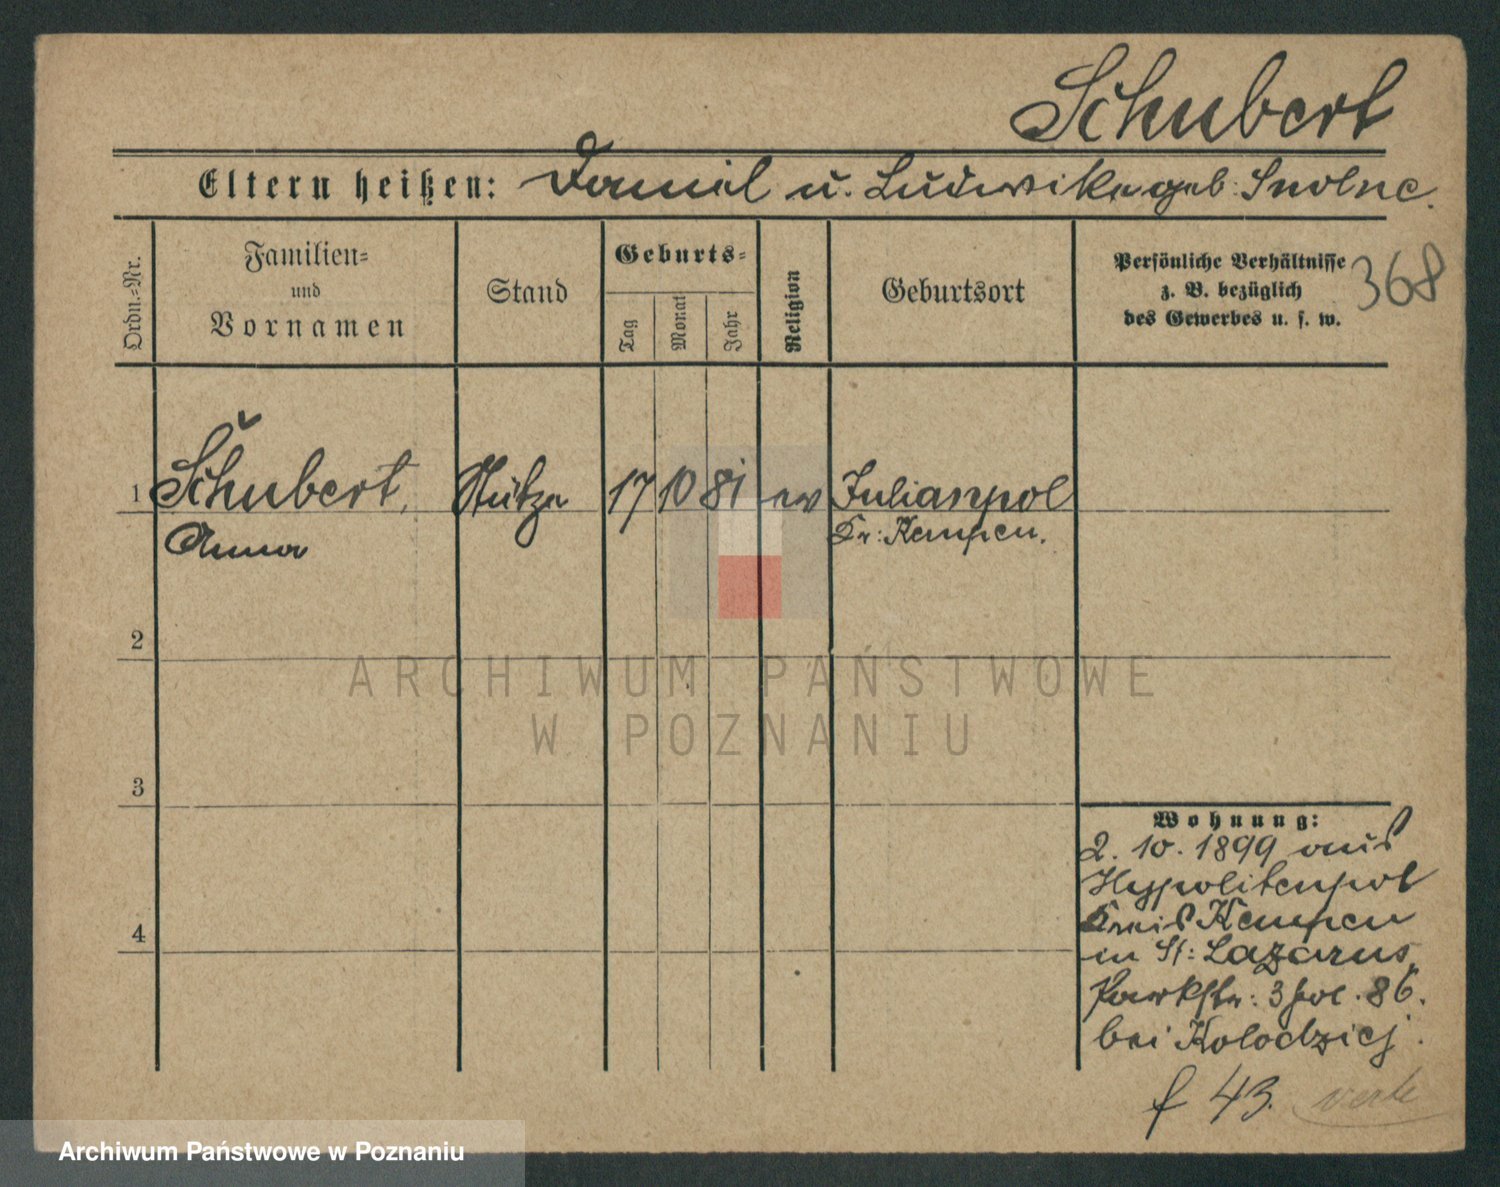 Schubert
Eltern heißen: Daniel u. Ludwika geb: Smolne.
Ordn.-Nr.
Familien- und Vornamen
Stand
Geburts-
Tag
Monat
Jahr
Religion
Geburtsort
Persönliche Verhältnisse
z. B. bezüglich
des Gewerbes u. s. w.
368
1 Schubert, Stütze 17 10 81 ev Julianpol
Anna Kr: Kempen.
2
3
4
Wohnung:
2. 10. 1899 aus
Hypolitenpol
Kreis Kempen
in St: Lazarus,
Parkstr: 3 pol. 86.
bei Kolodziej.
f 43.
ARCHIWUM PAŃSTWOWE
W POZNANIU
Archiwum Państwowe w Poznaniu